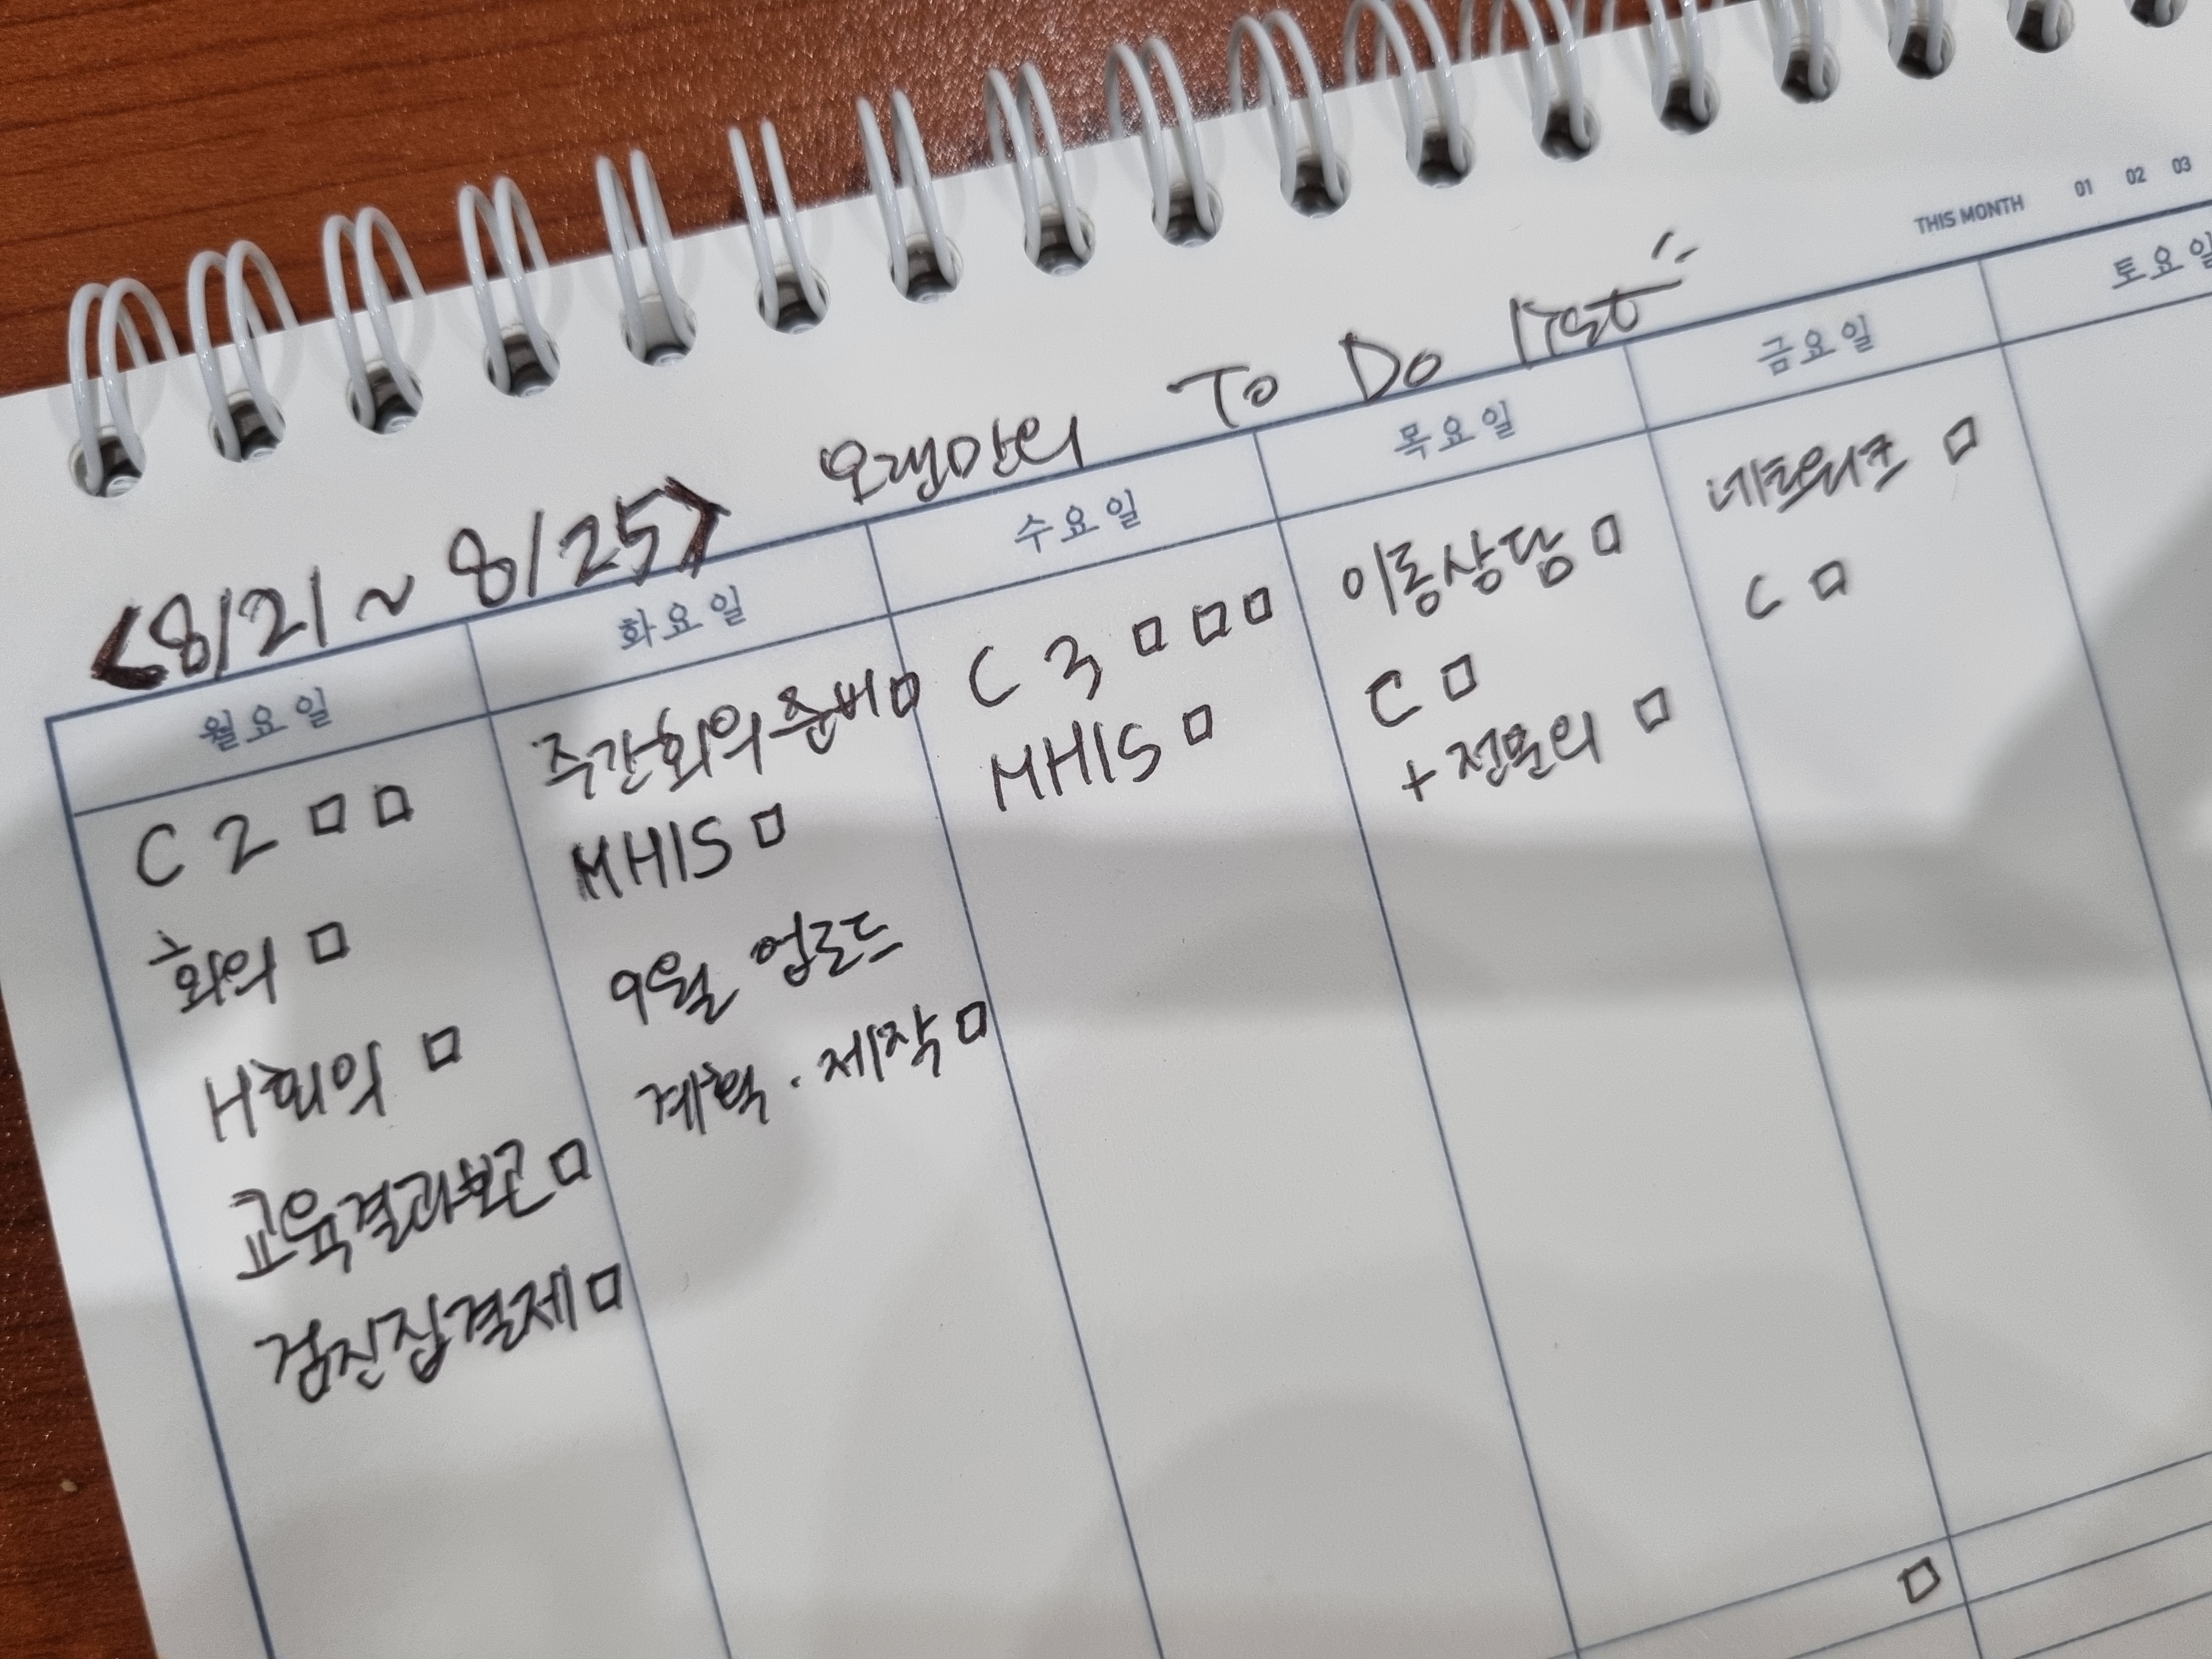 THIS MONTH 01 02 03
<8/21 ~ 8/25> 오랜만의 To Do list
월요일 화요일 수요일 목요일 금요일 토요일
C 2 □ □
회의 □
H회의 □
교육결과보고 □
검진집결제 □
주간회의준비 □
MHIS □
9월 업로드
계획 · 제작 □
C 3 □ □ □
MHIS □
이동상담 □
C □
+ 전문의 □
네트워크 □
C □
□